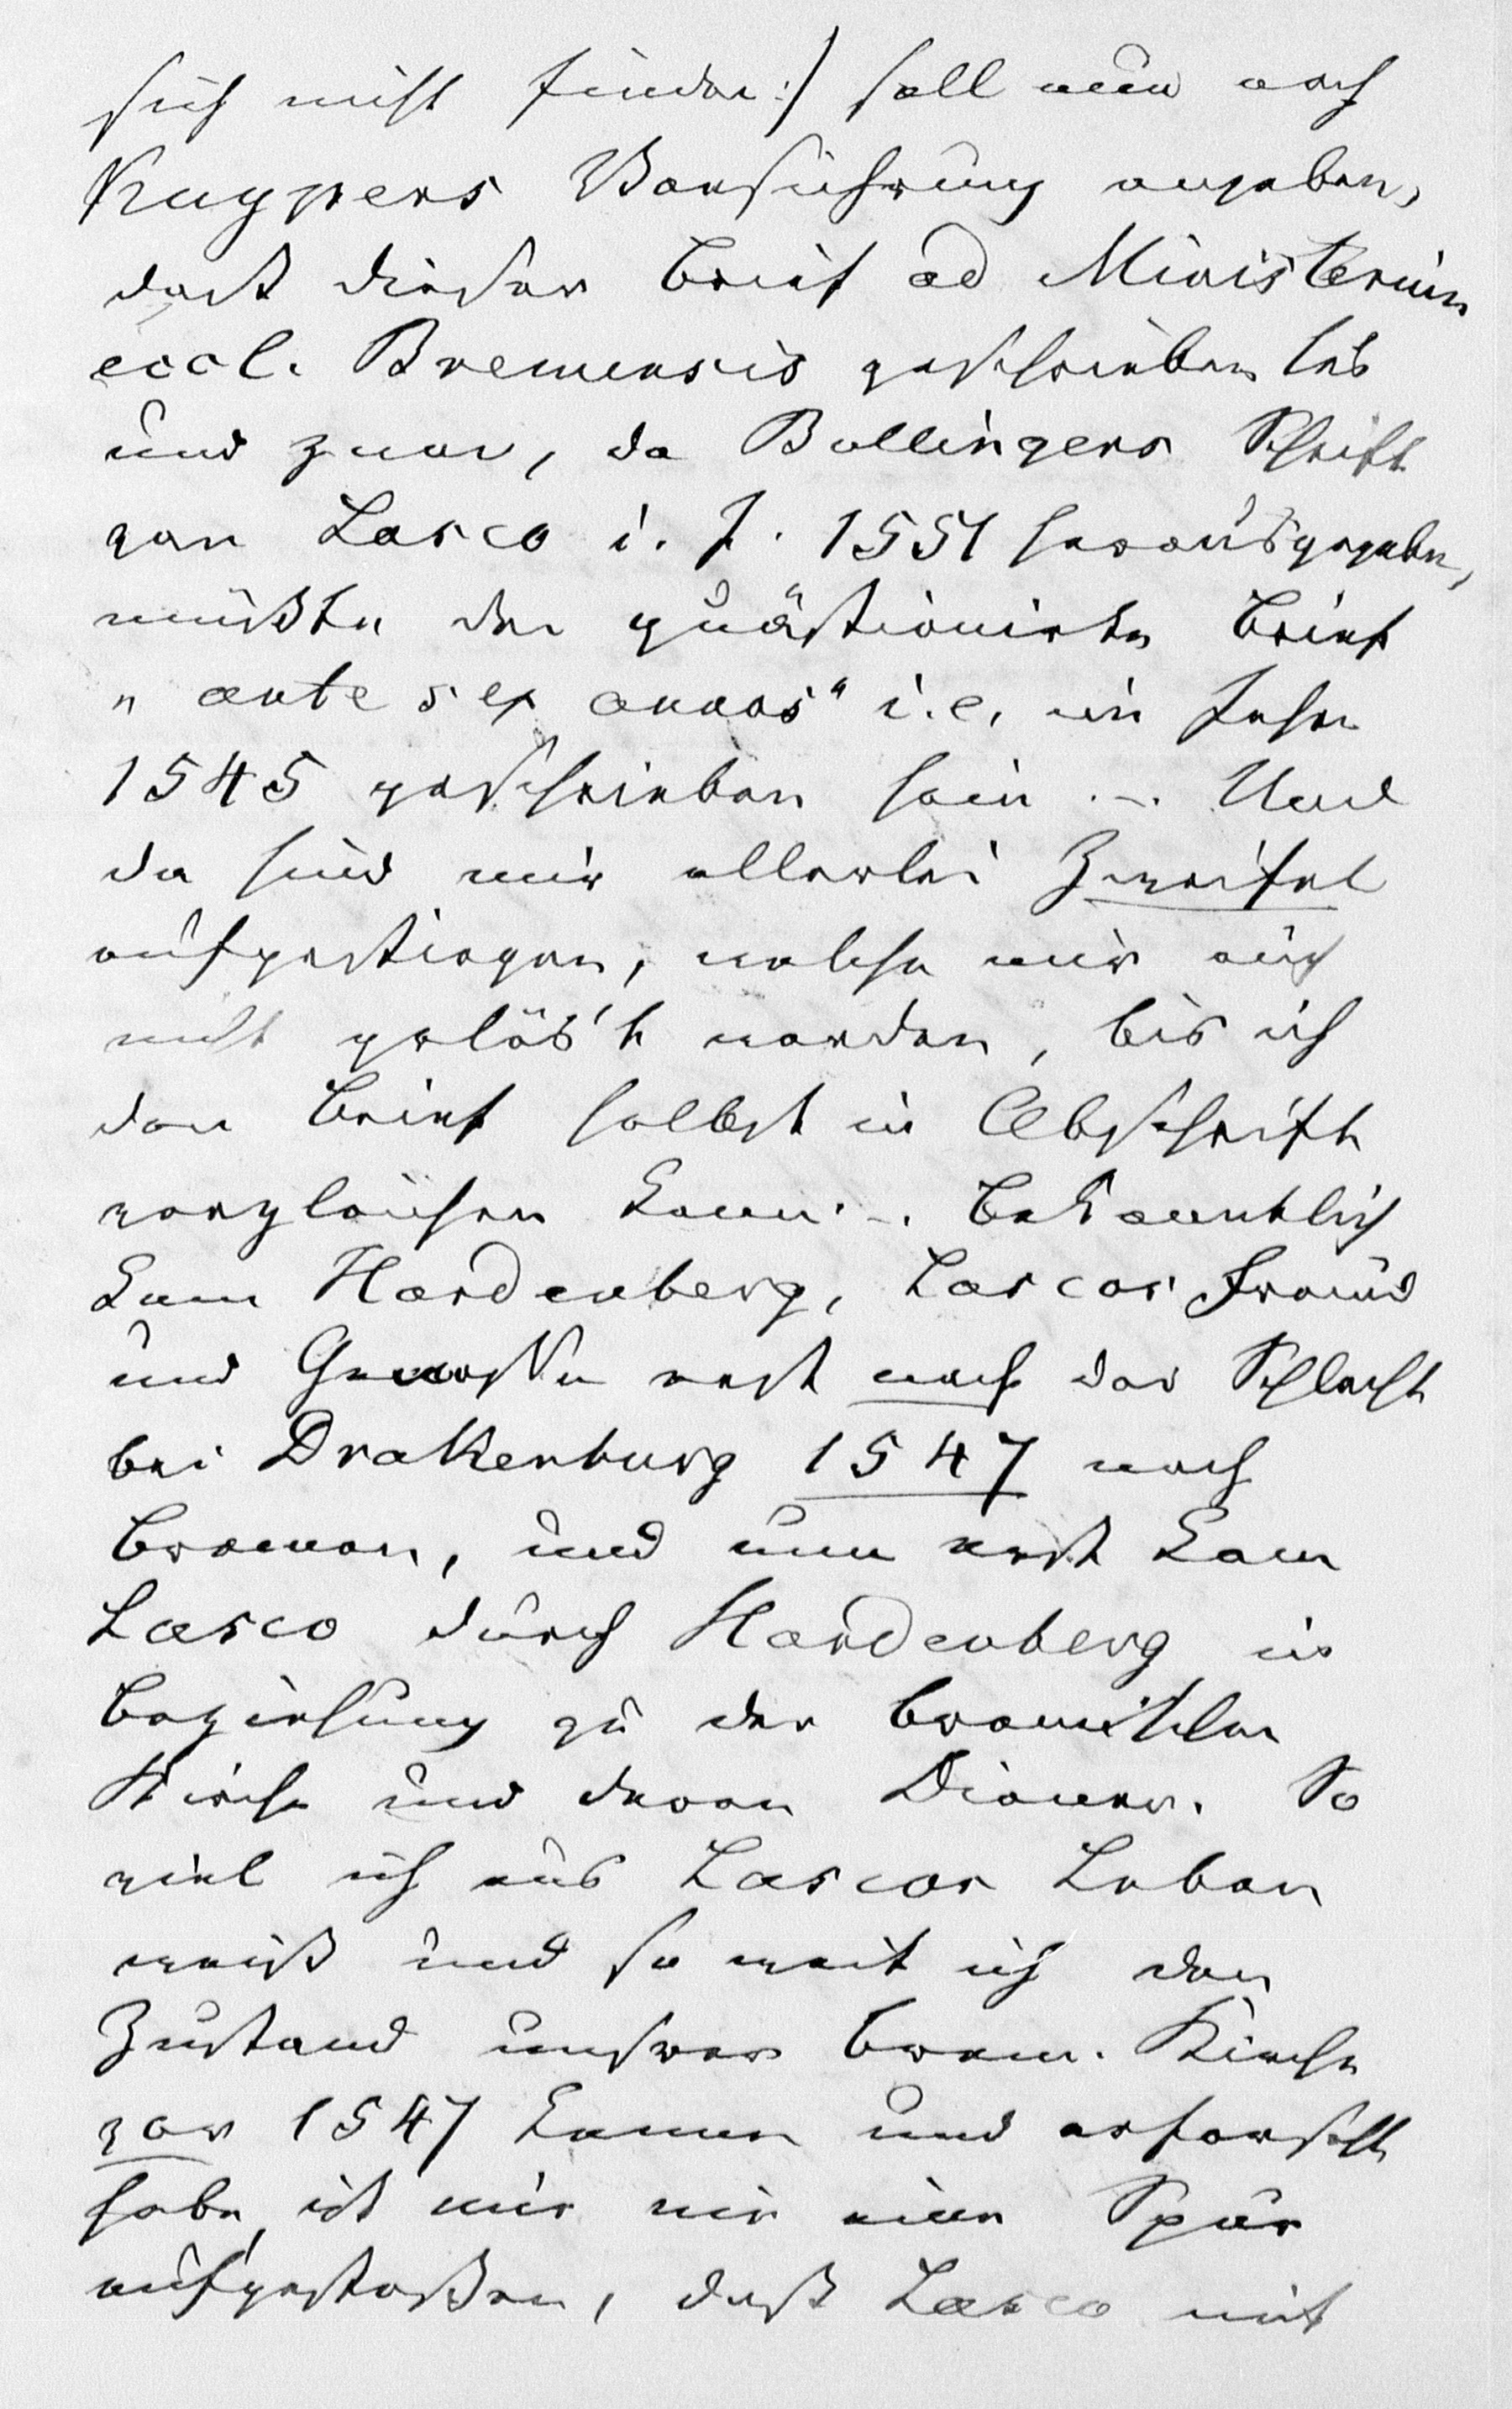 sich nicht finden:/ soll nun nach
Kuypers Versicherung ergeben,
daß dieser Brief ad Ministerium
eccl. Bremensis geschrieben sei
und zwar, da Bullingers Schrift
von Lasco i. J. 1551 herausgegeben,
müßte der quästionirte Brief
„ante sex annos“ i.e. im Jahre
1545 geschrieben sein. –. Und
da sind mir allerlei Zweifel
aufgestiegen, welche mir auch
nicht gelös't werden, bis ich
den Brief selbst in Abschrift
vergleichen kann. –. Bekanntlich
kam Hardenberg, Lascos Freund
und Genosse erst nach der Schlacht
bei Drakenburg 1547 nach
Bremen, und nun erst kam
Lasco durch Hardenberg in
Beziehung zu der bremischen
Kirche und deren Diener. So
viel ich aus Lascos Leben
weiß und so weit ich den
Zustand unserer brem. Kirche
vor 1547 kenne und erforscht
habe, ist mir nie eine Spur
aufgestoßen, daß Lasco mit